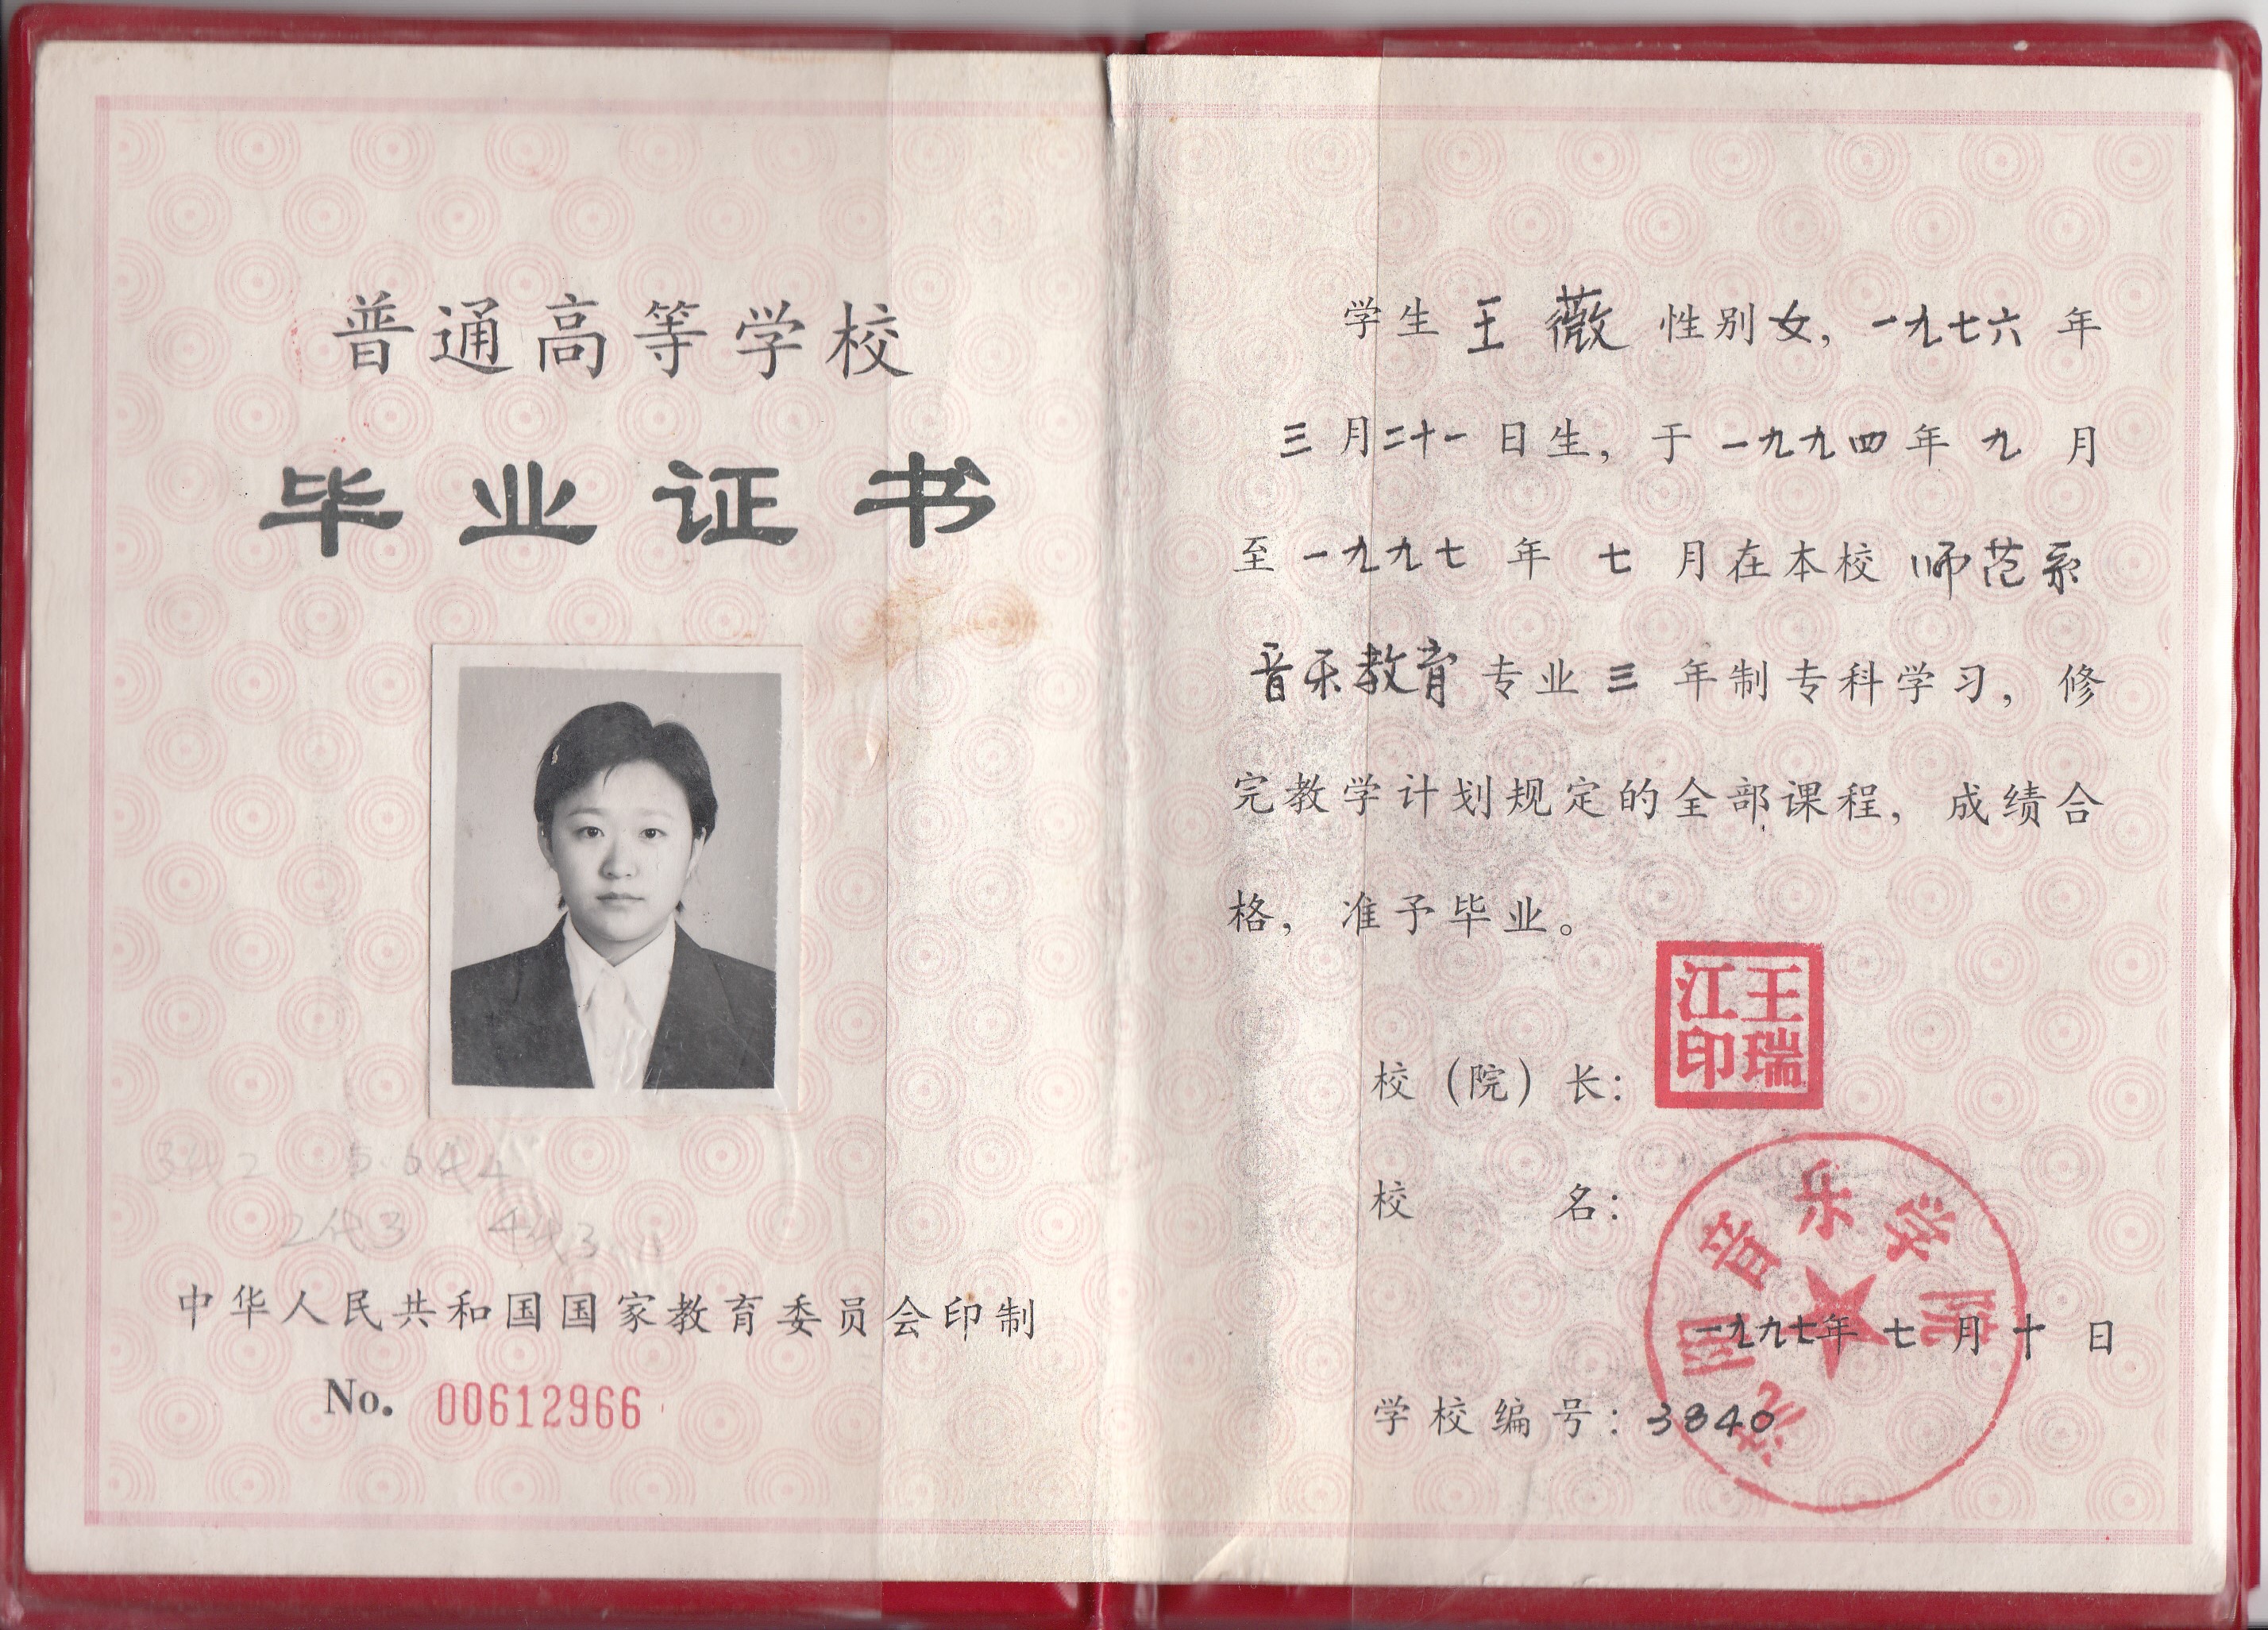 普通高等学校
毕业证书
3代2 5.6代4
2代3 4代3
中华人民共和国国家教育委员会印制
No. 00612966
学生 王薇 性别女，一九七六年
三月二十一日生，于一九九四年九月
至一九九七年七月在本校师范系
音乐教育专业三年制专科学习，修
完教学计划规定的全部课程，成绩合
格，准予毕业。
校（院）长：
王瑞江印
校名：
沈阳音乐学院
一九九七年七月十日
学校编号：3840